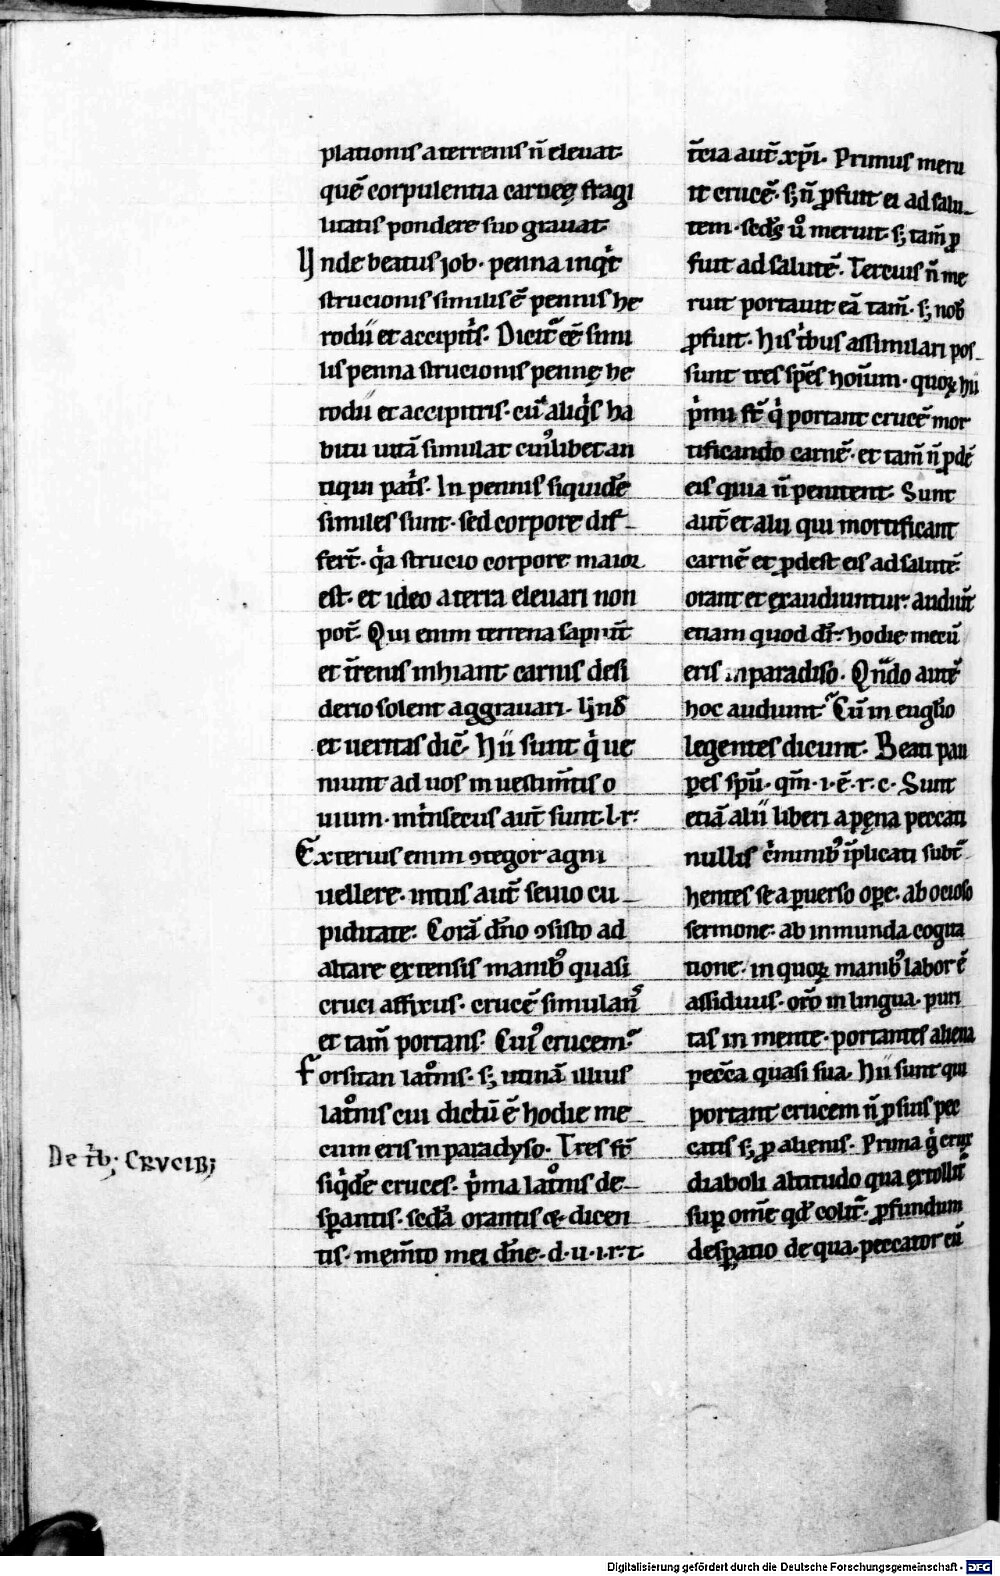 plationis a terrenis n̄ eleuat·
quē corpulentia carnee̜ fragi
litatis pondere suo grauat·
Vnde beatus job· penna inqͥt
strucionis similis ē pennis he
rodii et accipitͥs· Dicit᷑ eē simi
lis penna strucionis penne̜ he
rodii et accipitris· cū aliqͥs ha
bitu uitā simulat cui᷒libet an
tiqui patͥs· In pennis siquidē
similes sunt· sed corpore dif-
fert̄· qͥa strucio corpore maior
est· et ideo a terra eleuari non
pot̄· Qui enim terrena sapiūt
et t̄renis inhiant carnis desi
derio solent aggrauari· Vnđ
et ueritas dic̄· Hii sunt qͥ ue
niunt ad uos in uestim̄tis o
uium· intͥnsecus aut̄ sunt·l·r·
Exterius enim ꝯtegor agni
uellere· intus aut̄ seuio cu-
piditate· Corā dn̄o ꝯsisto ad
altare extensis manib᷒ quasi
cruci affixus· crucē simulan᷒
et tam̄ portans· Cui᷒ crucem·
Forsitan latōnis· sꝫ utinā illius
latōnis cui dictū ē hodie me-
cum eris in paradyso· Tres st̄
siqͥdē cruces· pͥma latōnis de-
sꝑantis· scđa orantis & dicen
tis· mem̄to mei dn̄e·d·u·i·r·t·
De tͥbꝫ· CRVCIBꝫ
t̄cia aut̄ xp̄i· Primus meru
it crucē· sꝫ n̄ ꝓfuit ei ad salu-
tem· secđs uͦ meruit· sꝫ tam̄ ꝓ
fuit ad salutē· Tercius n̄ me
ruit portauit eā tam̄· sꝫ nob̄
ꝓfuit· His tͥbus assimilari pos-
sunt tres sp̄es hoīum· quoꝝ hii
pͥmi st̄ qͥ portant crucē mor
tificando carnē· et tam̄ n̄ ꝓdē
eis quia n̄ penitent· Sunt
aut̄ et alii qui mortificant
carnē et ꝓdest eis ad salutē·
orant et exaudiuntur· audiūt
etiam quod dr̄· hodie mecū
eris in paradiso· Qn̄do autē
hoc audiunt᷑ Cū in eug̅lio
legentes dicunt· Beati pau
ꝑes sp̄u· qm̄·i·ē·r·c· Sunt
etiā alii liberi a pe̜na peccati
nullis cͥminib᷒ īplicati subt̄
hentes se a ꝑuerso oꝑe· ab ocioso
sermone· ab inmunda cogita
tione· in quoꝝ manib᷒ labor ē
assiduus· oro̅ in lingua· puri
tas in mente· portantes aliena
pecc̄a quasi sua· Hii sunt qui
portant crucem n̄ ꝓ suis pec
catis sꝫ ꝓ alienis· Prima gͥ erur
diaboli altitudo qua extollit᷑
suꝑ om̄e qđ colit᷑· ꝓfundum
desꝑatio de qua· peccator cū
Digitalisierung gefördert durch die Deutsche Forschungsgemeinschaft - DFG